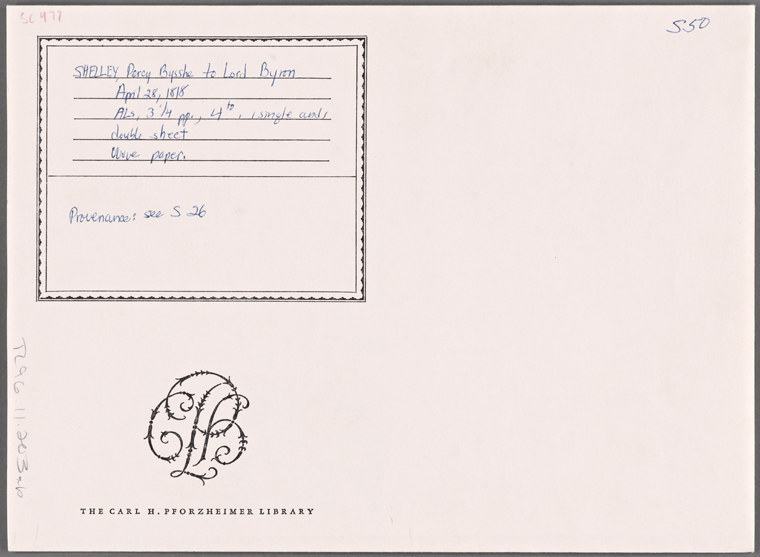 SC 477
S50
SHELLEY, Percy Bysshe to Lord Byron
April 28, 1818
ALs, 3 1/4 pp., 4to, 1 single and 1
double sheet
Wove paper.
Provenance: see S 26
THE CARL H. PFORZHEIMER LIBRARY